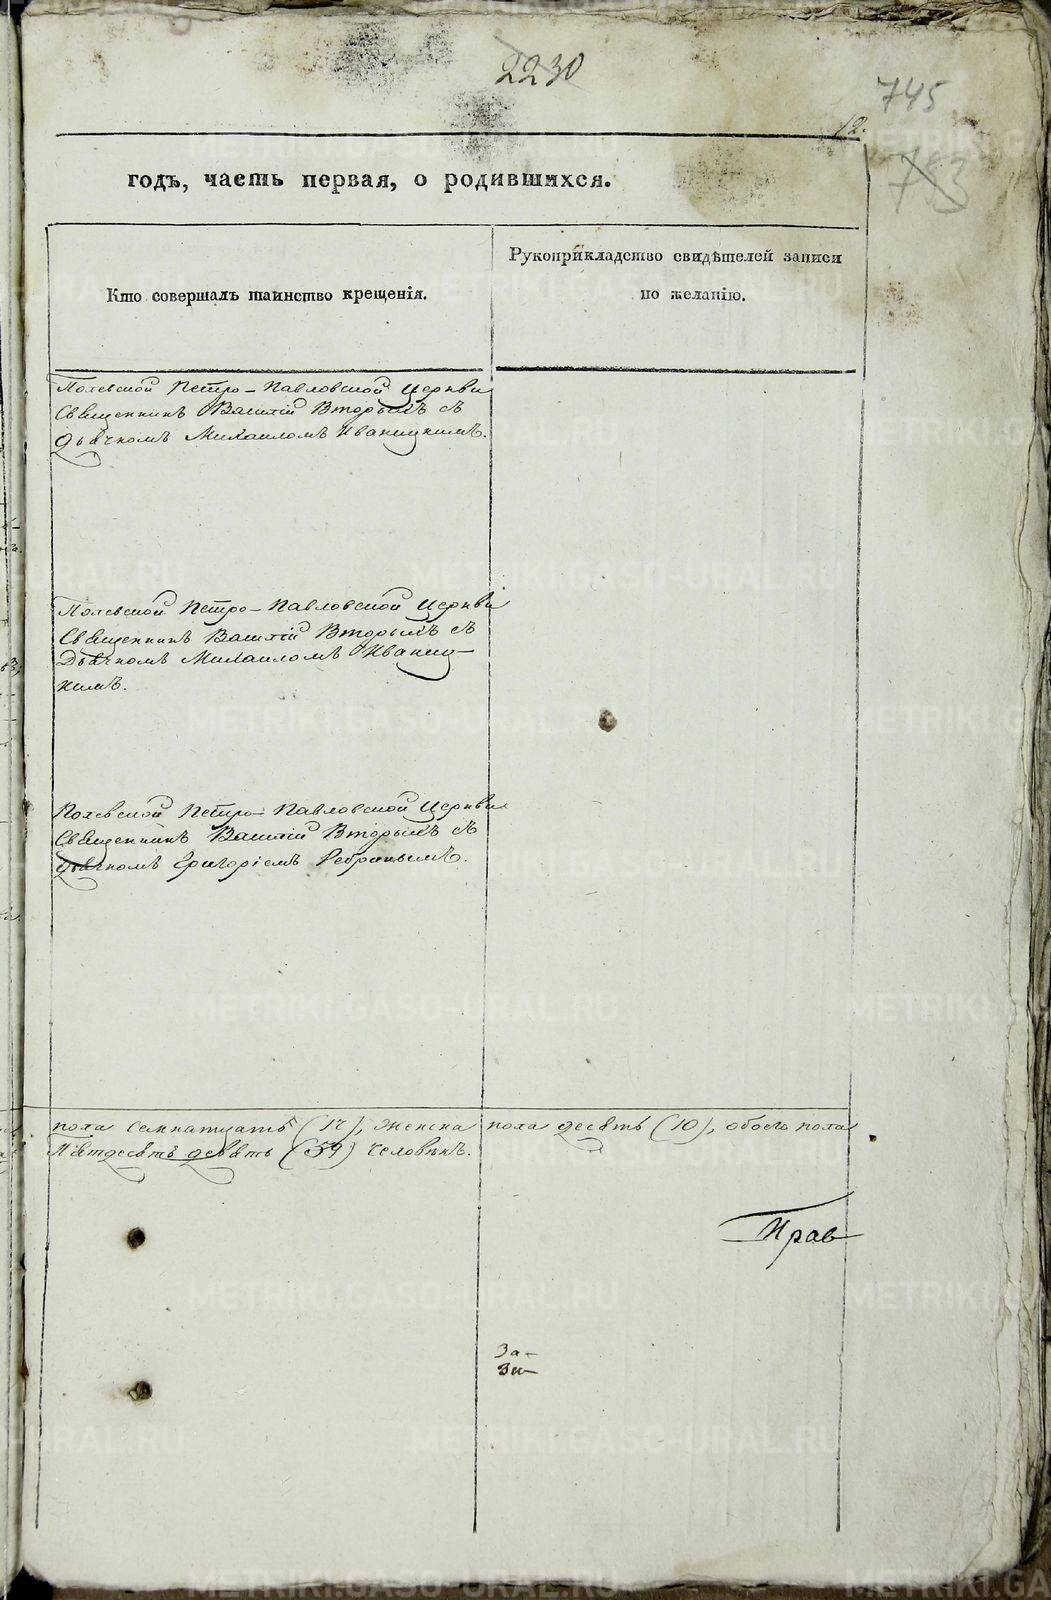 2230
745
12.
783
годъ, часть первая, о родившихся.
Кто совершалъ таинство крещенія.
Рукоприкладство свидѣтелей записи
по желанію.
Полевской Петро-Павловской Церкви
Священникъ Василій Вторыхъ съ
Дьячкомъ Михаиломъ Иваницкимъ.
Полевской Петро-Павловской Церкви
Священникъ Василій Вторыхъ съ
Дьячкомъ Михаиломъ Иваниц-
кимъ.
Полевской Петро-Павловской Церкви
Священникъ Василій Вторыхъ съ
дьячкомъ Григоріемъ Ребринымъ.
пола семнатцать (17), женска пола десять (10), обоего пола
Пятдесятъ девять (59) человѣкъ.
Прав-
За-
Зи-
METRIKI.GASO-URAL.RU